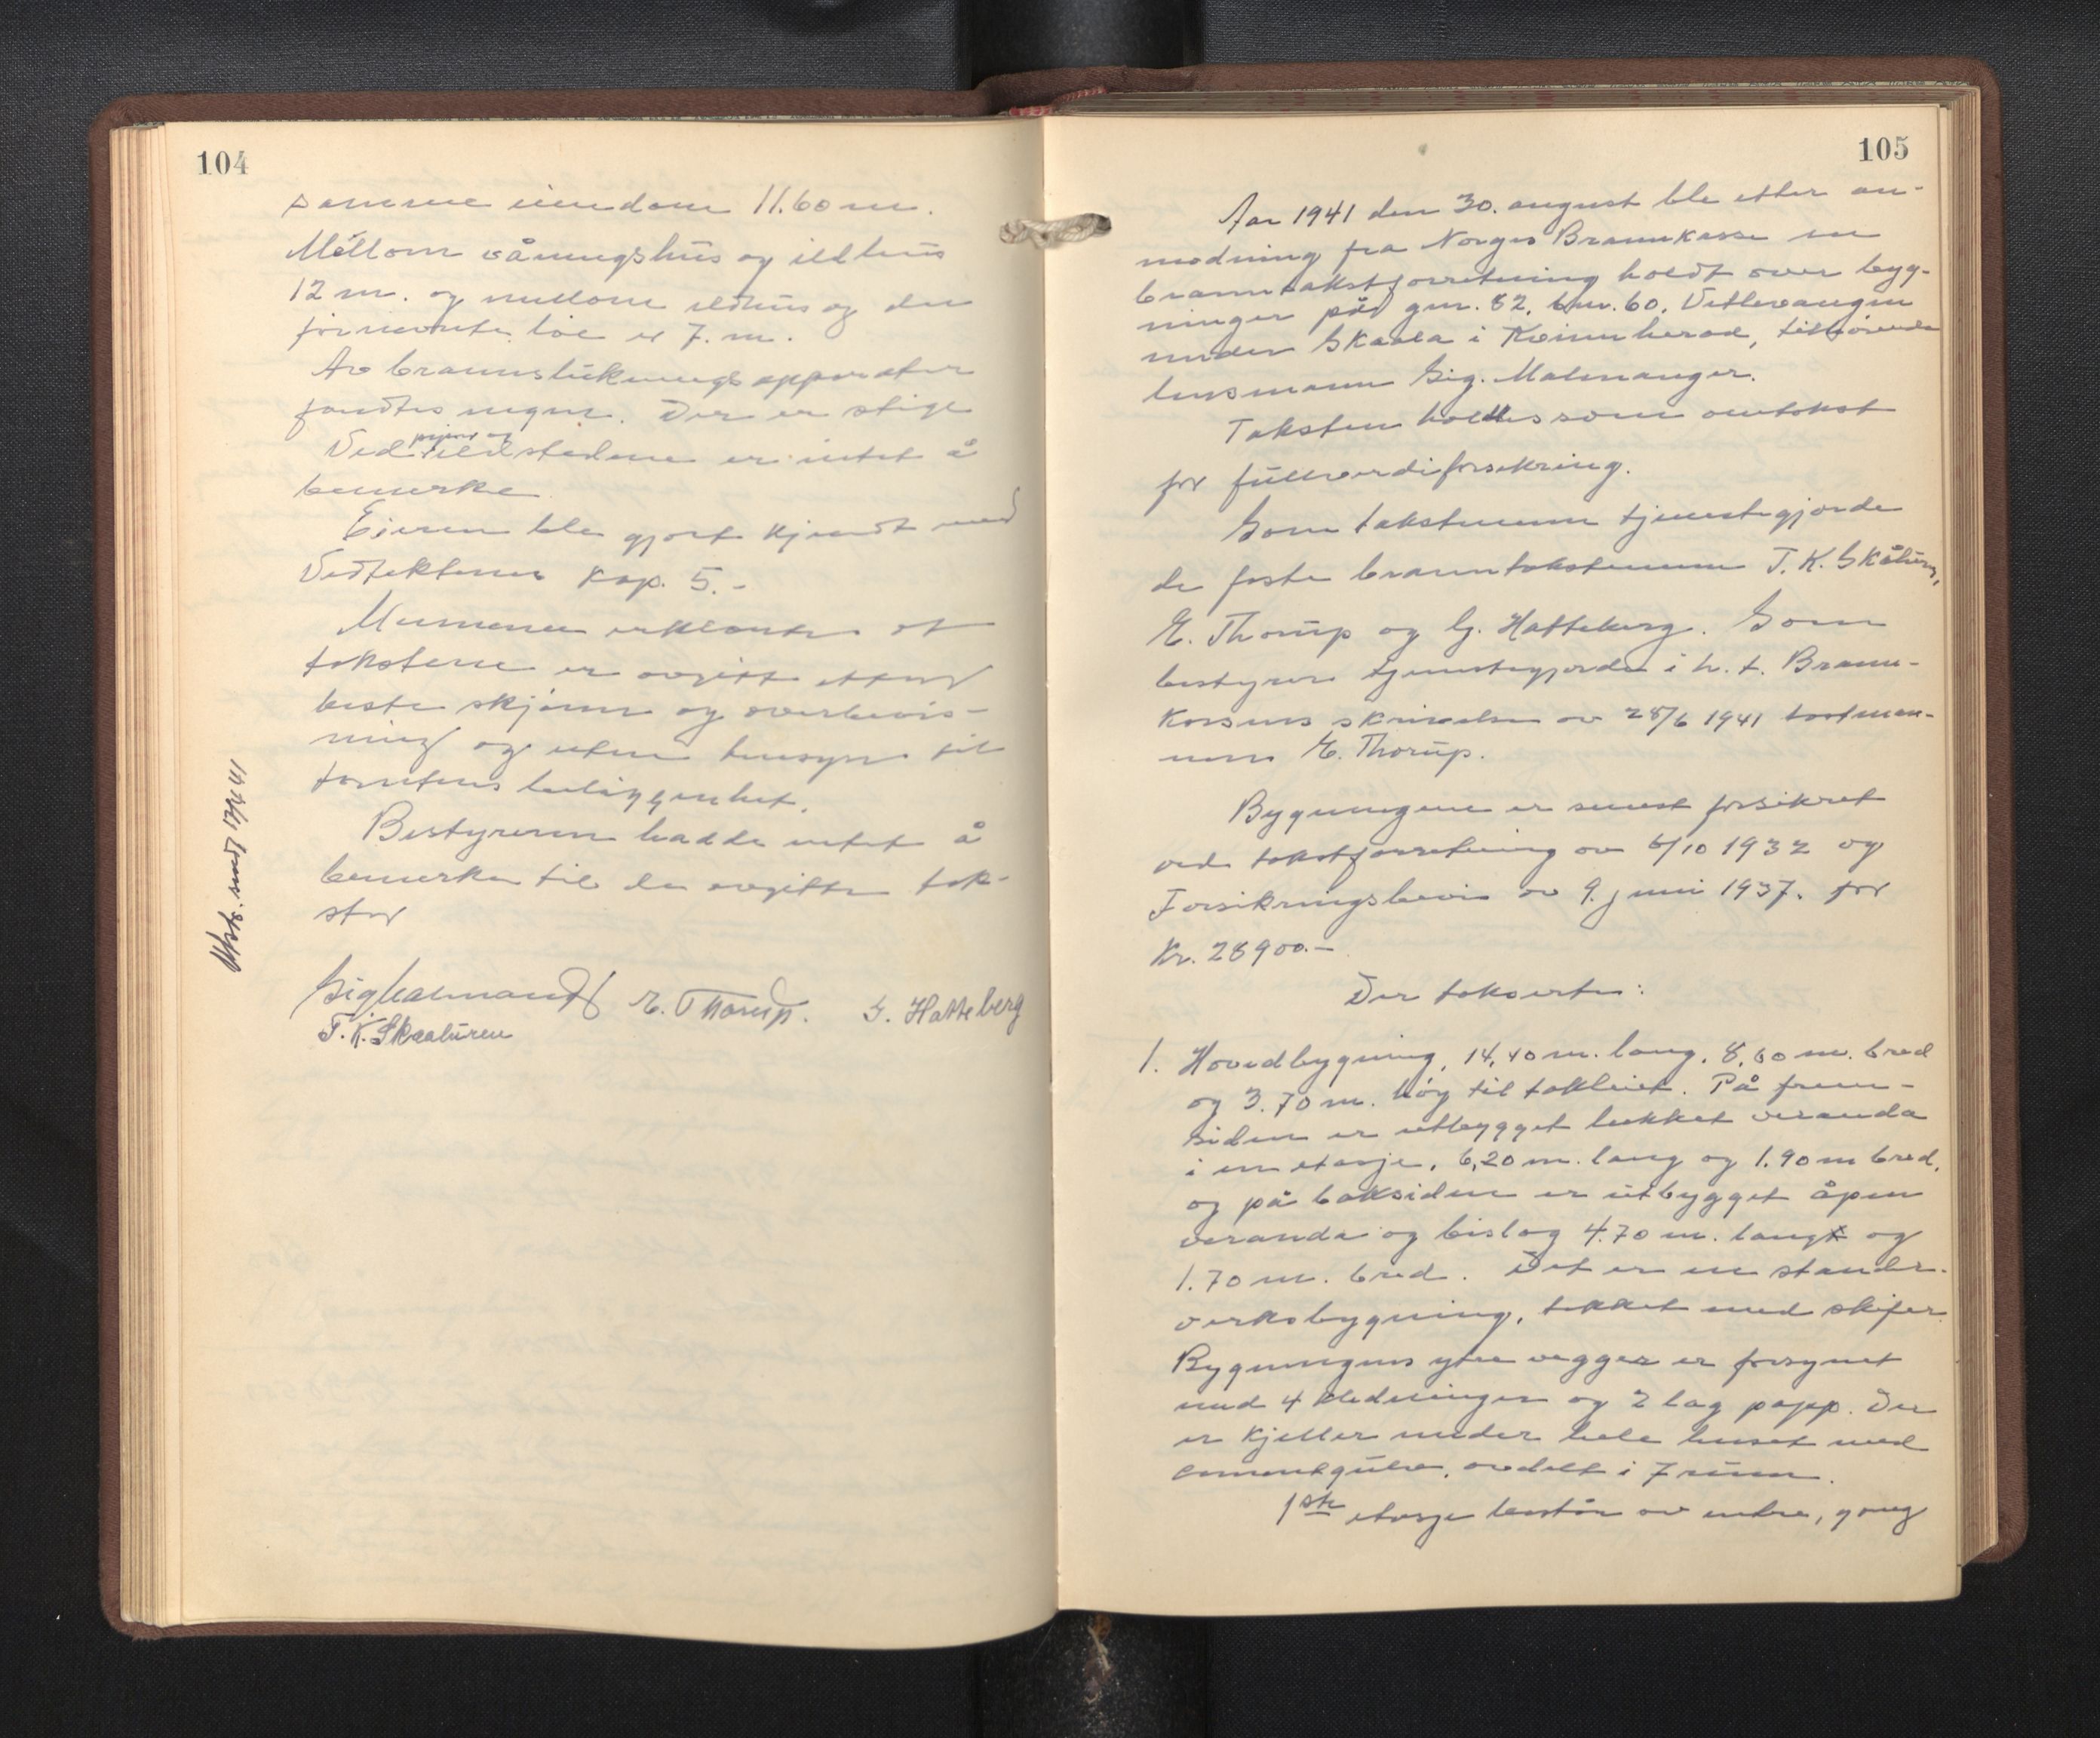 104
samme eiendom 11.60 m.
Mellom våningshus og ildhus
12 m. og mellom ildhus og den
førnevnte løe er 7. m.
Av brannslukningsapparater
fandtes ingen. Der er stige
Ved piper og ildstedene er intet å
bemerke
Eieren ble gjort kjendt med
Vedtektenes kap. 5.-
Mennene erklærte at
takstene er avgitt etter
beste skjønn og overbevis-
ning og uten hensyn til
tomtens beliggenhet.
Bestyreren hadde intet å
bemerke til de avgitte tak-
ster
Sig Malmanger E. Thorup. G. Hatteberg
T. K. Skaaluren
Utsk. sendt 17/9 41
105
Aar 1941 den 30. august ble etter an-
modning fra Norges Brannkasse en
branntakstforretning holdt over byg-
ninger på gnr. 82, bnr. 60. Vetlevangen
under Skaala i Kvinnherad, tilhørende
lensmann Sig. Malmanger.
Taksten holdtes som omtakst
for fullverdiforsikring.
Som takstmenn tjenestegjorde
de faste branntakstmenn T. K. Skåluren,
E. Thorup og G. Hatteberg. Som
bestyrer tjenestegjorde i h. t. Brann-
kassens skrivelse av 28/6 1941 takstman-
nen E. Thorup.
Bygningene er senest forsikret
ved takstforretning av 6/10 1932 og
Forsikringsbevis av 9. juni 1937. for
Kr. 28900.-
Der takserte:
1. Hovedbygning, 14,40 m. lang, 8,60 m. bred
og 3.70 m. høy til takleiet. På frem-
siden er utbygget lukket veranda
i en etasje, 6,20 m. lang og 1.90 m bred,
og på baksiden er utbygget åpen
veranda og bislag 4.70 m. lang og
1.70 m. bred. Det er en stender-
verksbygning, tekket med skifer.
Bygningens ytre vegger er forsynet
med 4 kledninger og 2 lag papp. Der
er kjeller under hele huset med
cementgulv, avdelt i 7 rum.
1ste etasje består av entre, gang